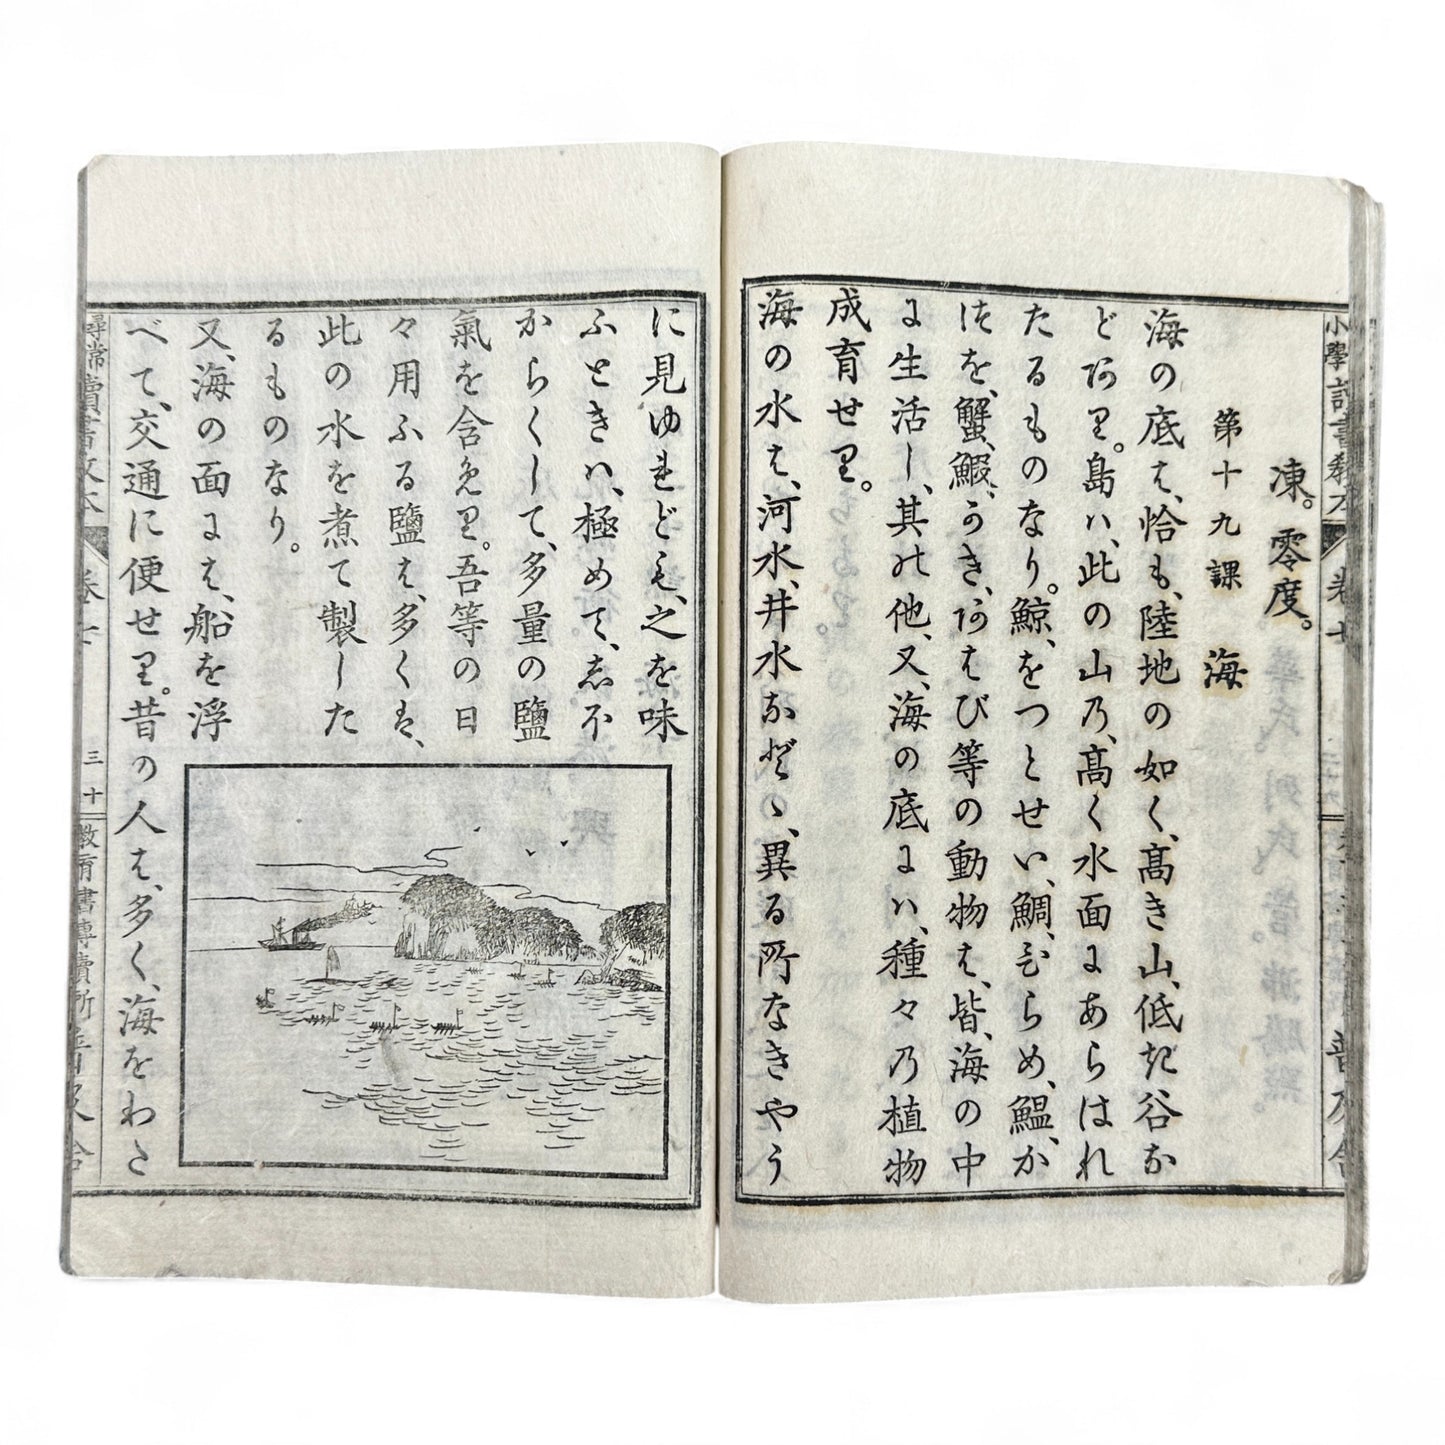 小學讀書教本 卷七
凍。零度。
第十九課 海
海の底は、恰も、陸地の如く、高き山、低き谷な
どあり。島ハ、此の山の、高く水面にあらはれ
たるものなり。鯨、をつとせい、鯛、ひらめ、鰛、か
つを、蟹、鰕、かき、あはび等の動物は、皆、海の中
に生活し、其の他、又、海の底にハ、種々の植物
成育せり。
海の水は、河水、井水などゝ、異る所なきやう
に見ゆれども、之を味
ふときハ、極めて、しほ
からくして、多量の鹽
氣を含めり。吾等の日
々用ふる鹽は、多くは、
此の水を煮て製した
るものなり。
又、海の面には、船を浮
べて、交通に便せり。昔の人は、多く、海をわた
尋常讀書教本 卷七 三十 教育書專賣所普及舍